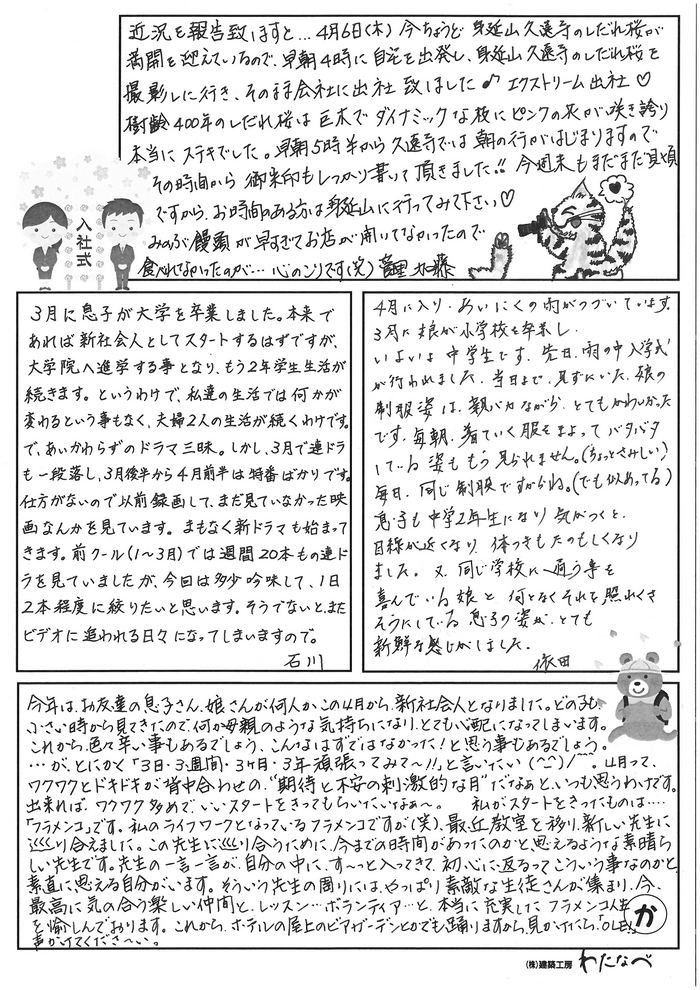 近況を報告致しますと…4月6日(木)今ちょうど身延山久遠寺のしだれ桜が
満開を迎えているので、早朝4時に自宅を出発し、身延山久遠寺のしだれ桜を
撮影しに行き、そのまま会社に出社致しました♪ エクストリーム出社♡
樹齢400年のしだれ桜は巨木でダイナミックな枝にピンクの花が咲き誇り
本当にステキでした。早朝5時半から久遠寺では朝の行がはじまりますので
その時間から御朱印もしっかり書いて頂きました!! 今週末もまだまだ見頃
ですから、お時間のある方は身延山に行ってみて下さい♡
みのぶ饅頭が早すぎてお店が開いてなかったので
食べれなかったのが…心のこりです(笑)
入社式
3月に息子が大学を卒業しました。本来で
あれば新社会人としてスタートするはずですが、
大学院へ進学する事となり、もう2年学生生活が
続きます。というわけで、私達の生活では何かが
変わるという事もなく、夫婦2人の生活が続くわけです。
で、あいかわらずのドラマ三昧。しかし、3月で連ドラ
も一段落し、3月後半から4月前半は特番ばかりです。
仕方がないので以前録画して、まだ見ていなかった映
画なんかを見ています。まもなく新ドラマも始まって
きます。前クール(1〜3月)では週間20本もの連ド
ラを見ていましたが、今回は多少吟味して、1日
2本程度に絞りたいと思います。そうでないと、また
ビデオに追われる日々になってしまいますので。
石川
4月に入り、あいにくの雨がつづいています。
3月に娘が小学校を卒業し、
いよいよ中学生です。先日、雨の中入学式
が行われました。当日まで、見ずにいた、娘の
制服姿は、親バカながら、とてもかわいかった
です。毎朝、着ていく服をまよってバタバタ
している姿ももう見られません。(ちょっとさみしい)
毎日、同じ制服ですからね。(でも似あってる)
息子も中学2年生になり気がつくと、
目線が近くなり、体つきもたのもしくなり
ました。又、同じ学校に通う事を
喜んでいる娘と何となくそれを照れくさ
そうにしている息子の姿が、とても
新鮮な感じがしました。
依田
今年は、お友達の息子さん、娘さんが何人か、この4月から、新社会人となりました。どの子も、
小さい時から見てきたので、何か母親のような気持ちになり、とても心配になってしまいます。
これから、色々辛い事もあるでしょう、こんなはずではなかった!と思う事もあるでしょう。
…が、とにかく「3日・3週間・3ヶ月・3年頑張ってみて〜!!」と言いたい(^^)/~~。4月って、
ワクワクとドキドキが背中合わせの、"期待と不安の刺激的な月"だなぁと、いつも思うわけです。
出来れば、ワクワク多めで、いいスタートをきってもらいたいなぁ〜。 私がスタートをきったものは…
「フラメンコ」です。私のライフワークとなっているフラメンコですが(笑)、最近教室を移り、新しい先生に
巡り合えました。この先生に巡り合うために、今までの時間があったのかと思えるような素晴ら
しい先生です。先生の一言一言が、自分の中に、す〜っと入ってきて、初心に返るってこういう事なのかと、
素直に思える自分がいます。そういう先生の周りには、やっぱり素敵な生徒さんが集まり、今、
最高に気の合う楽しい仲間と、レッスン…ボランティア…と、本当に充実したフラメンコ人生
を愉しんでおります。これから、ホテルの屋上のビアガーデンとかでも踊りますから、見かけたら、「OLE!」
声かけてくださ〜い。
か
(株)建築工房 わたなべ